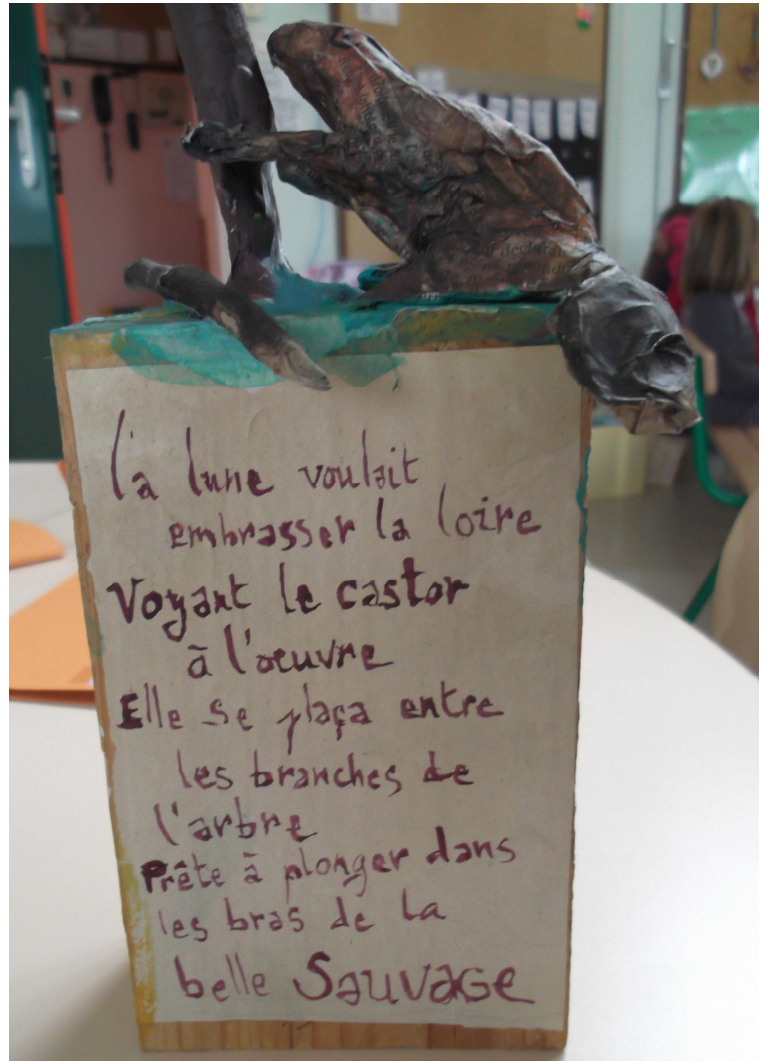 la lune voulait
embrasser la loire
Voyant le castor
à l'oeuvre
Elle se plaça entre
les branches de
l'arbre
Prête à plonger dans
les bras de la
belle Sauvage